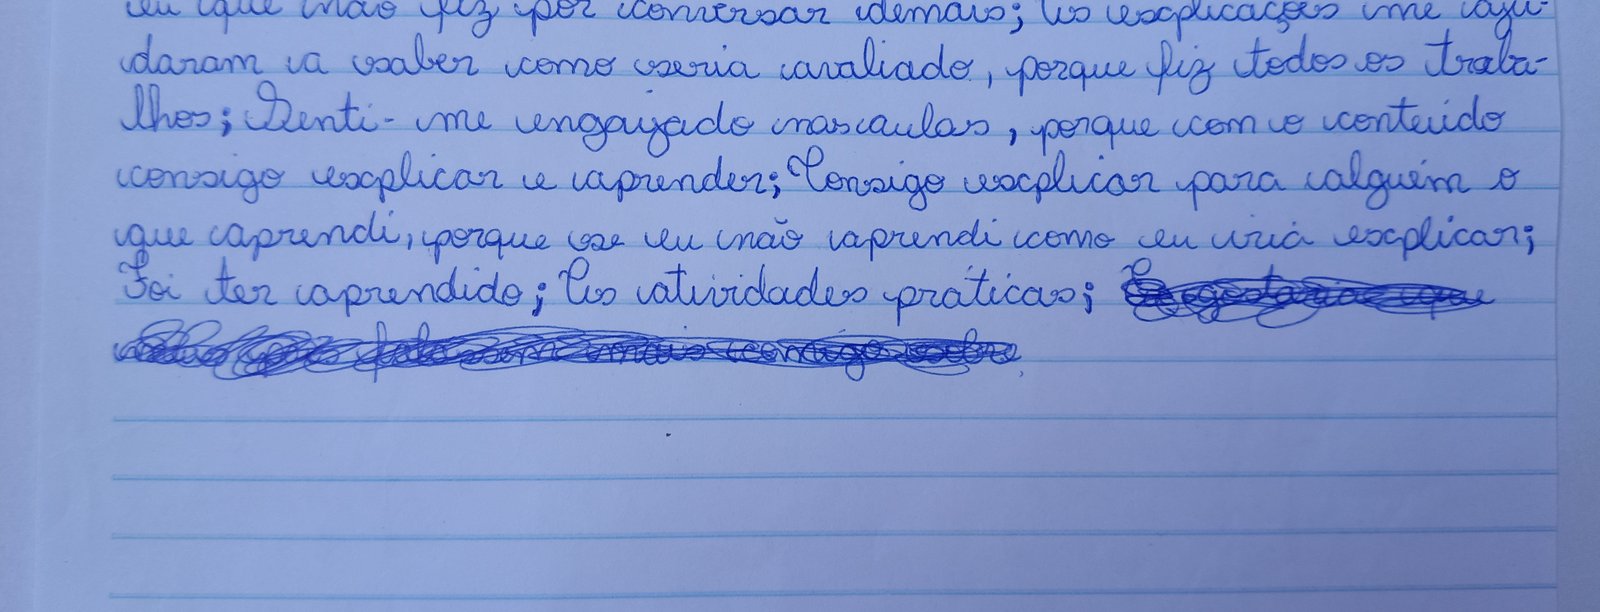 eu que não fiz por conversar demais; As explicações me aju-
daram a saber como seria avaliado, porque fiz todos os traba-
lhos; Senti-me engajado nas aulas, porque com o conteúdo
consigo explicar e aprender; Consigo explicar para alguém o
que aprendi, porque se eu não aprendi como eu iria explicar;
Foi ter aprendido; As atividades práticas;